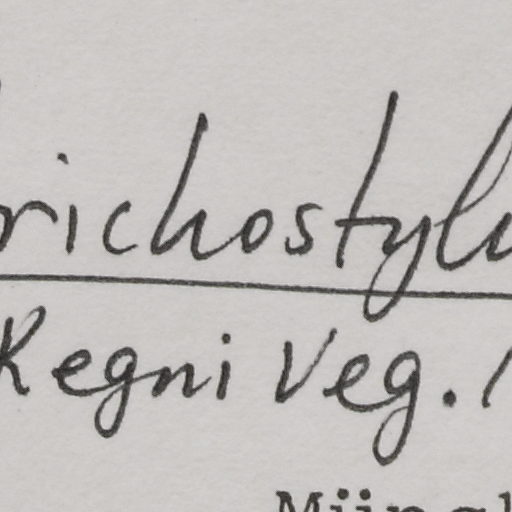 richostyl
Regni Veg.